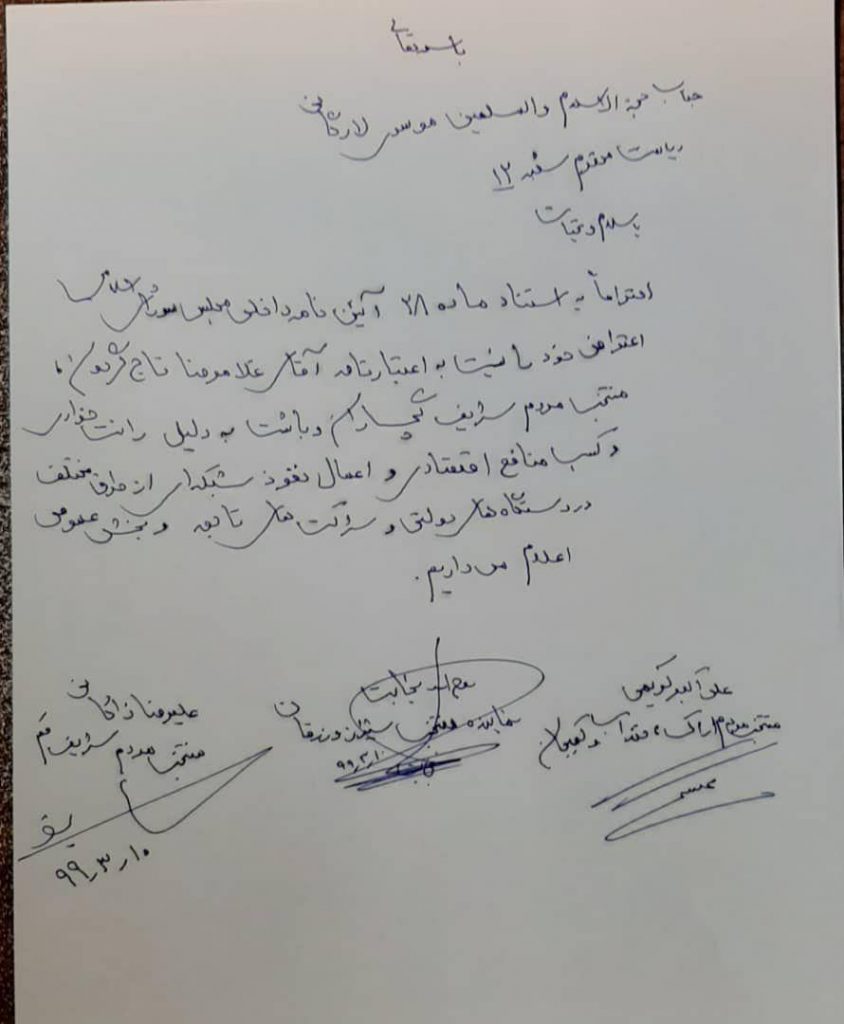 باسمه تعالی
جناب حجة الاسلام والمسلمین موسوی لارگانی
ریاست محترم شعبه ۱۲
باسلام و تحیات
احتراماً به استناد ماده ۲۸ آئین نامه داخلی مجلس شورای اسلامی
اعتراض خود را نسبت به اعتبارنامه آقای غلامرضا تاج گردون،
منتخب مردم شریف گچساران و باشت به دلیل رانت خواری
و کسب منافع اقتصادی و اعمال نفوذ شبکه ای از طرق مختلف
در دستگاه های دولتی و شرکت های تابعه و بخش عمومی
اعلام می داریم.
علی اکبر کریمی
منتخب مردم اراک، خنداب و کمیجان
روح اله نجابت
نماینده منتخب شیراز و زرقان
علیرضا زاکانی
منتخب مردم شریف قم
۹۹٫۳٫۱۰